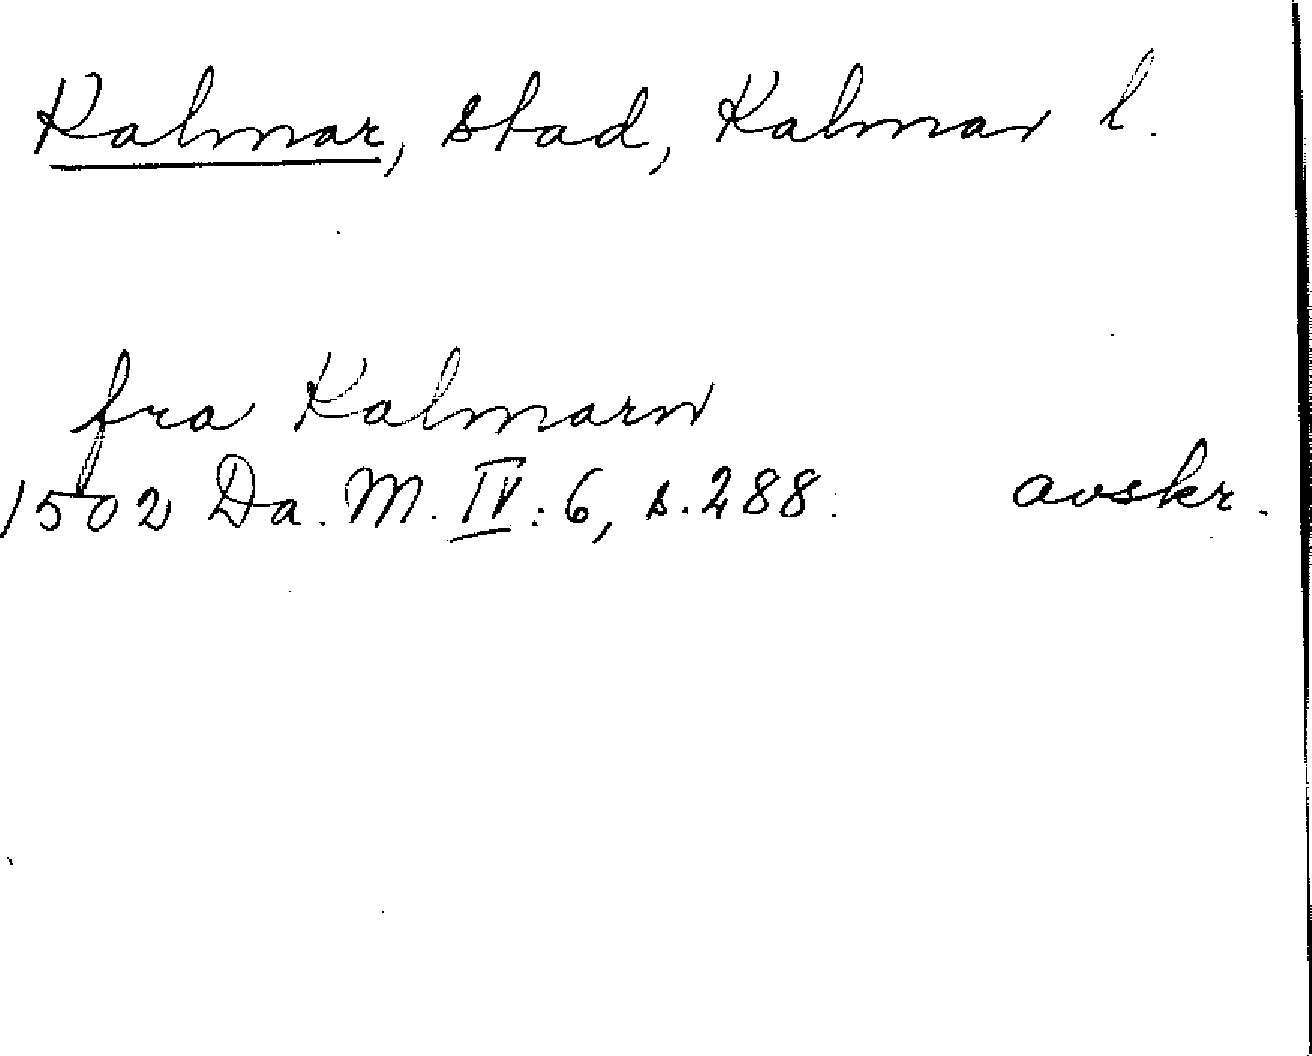 Kalmar, stad, Kalmar l.
fra Kalmarn
1502 Da. M. IV: 6, s. 288. avskr.